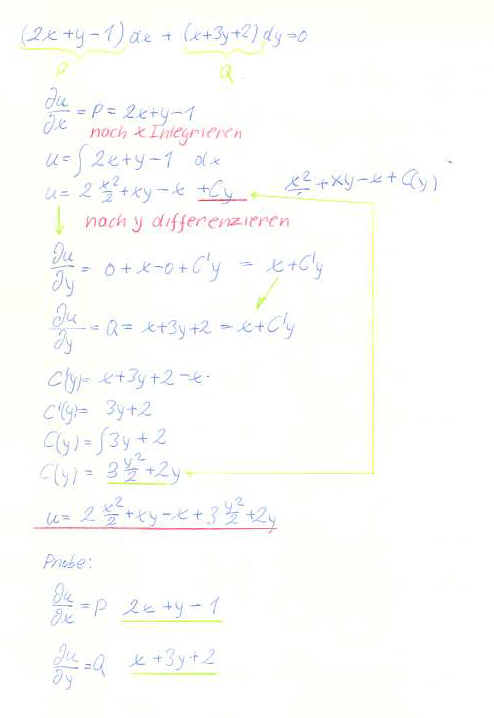 (2x+y-1) dx + (x+3y+2) dy=0
P Q
∂u/∂x = P = 2x+y-1
nach x Integrieren
u=∫ 2x+y-1 dx
u= 2 x²/2 +xy-x +Cy x²/ +xy-x+C(y)
nach y differenzieren
∂u/∂y = 0+x-0+C'y = x+C'y
∂u/∂y = Q = x+3y+2 = x+C'y
C'(y)= x+3y+2-x
C'(y)= 3y+2
C(y)=∫3y+2
C(y)= 3 y²/2 +2y
u= 2 x²/2 +xy-x+3 y²/2 +2y
Probe:
∂u/∂x =P 2x+y-1
∂u/∂y =Q x+3y+2